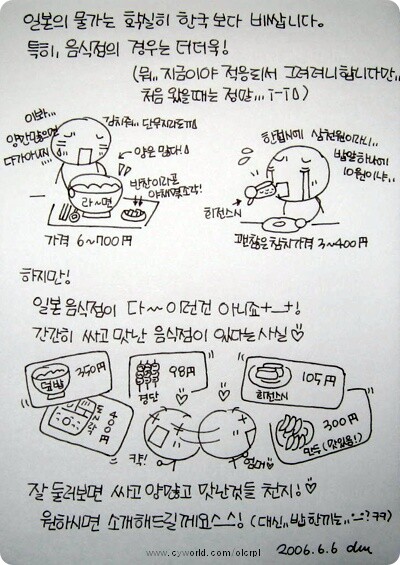 일본의 물가는 확실히 한국보다 비쌉니다。
특히, 음식점의 경우는 더더욱!
(뭐.. 지금이야 적응되서 그려려니 합니다만,,
처음 왔을때는 정말... i-i△)
이봐...
양만 많으면
다가아니지
김치줘.. 단무지라도
←양은 많다!
반찬이라곤
야채몇조각!
라~면
가격 6~700円
한접시에 삼천원이라니..
밥알하나에
10원이냐..
회전스시
괜찮은참치가격 3~400円
하지만!
일본음식점이 다~ 이런건 아니죠+_+!
간간히 싸고 맛난 음식점이 있다는 사실♡
덮밥
350円
경단
98円
회전스시
105円
돈까스
400円
300円
만두(맛있음!)
캭!
잘 둘러보면 싸고 양많고 맛난것들 천지!♡
원하시면 소개해드릴께요~스~! (대신,, 밥한끼는,, ㅋㅋ)
www.cyworld.com/olcrpl
2006.6.6